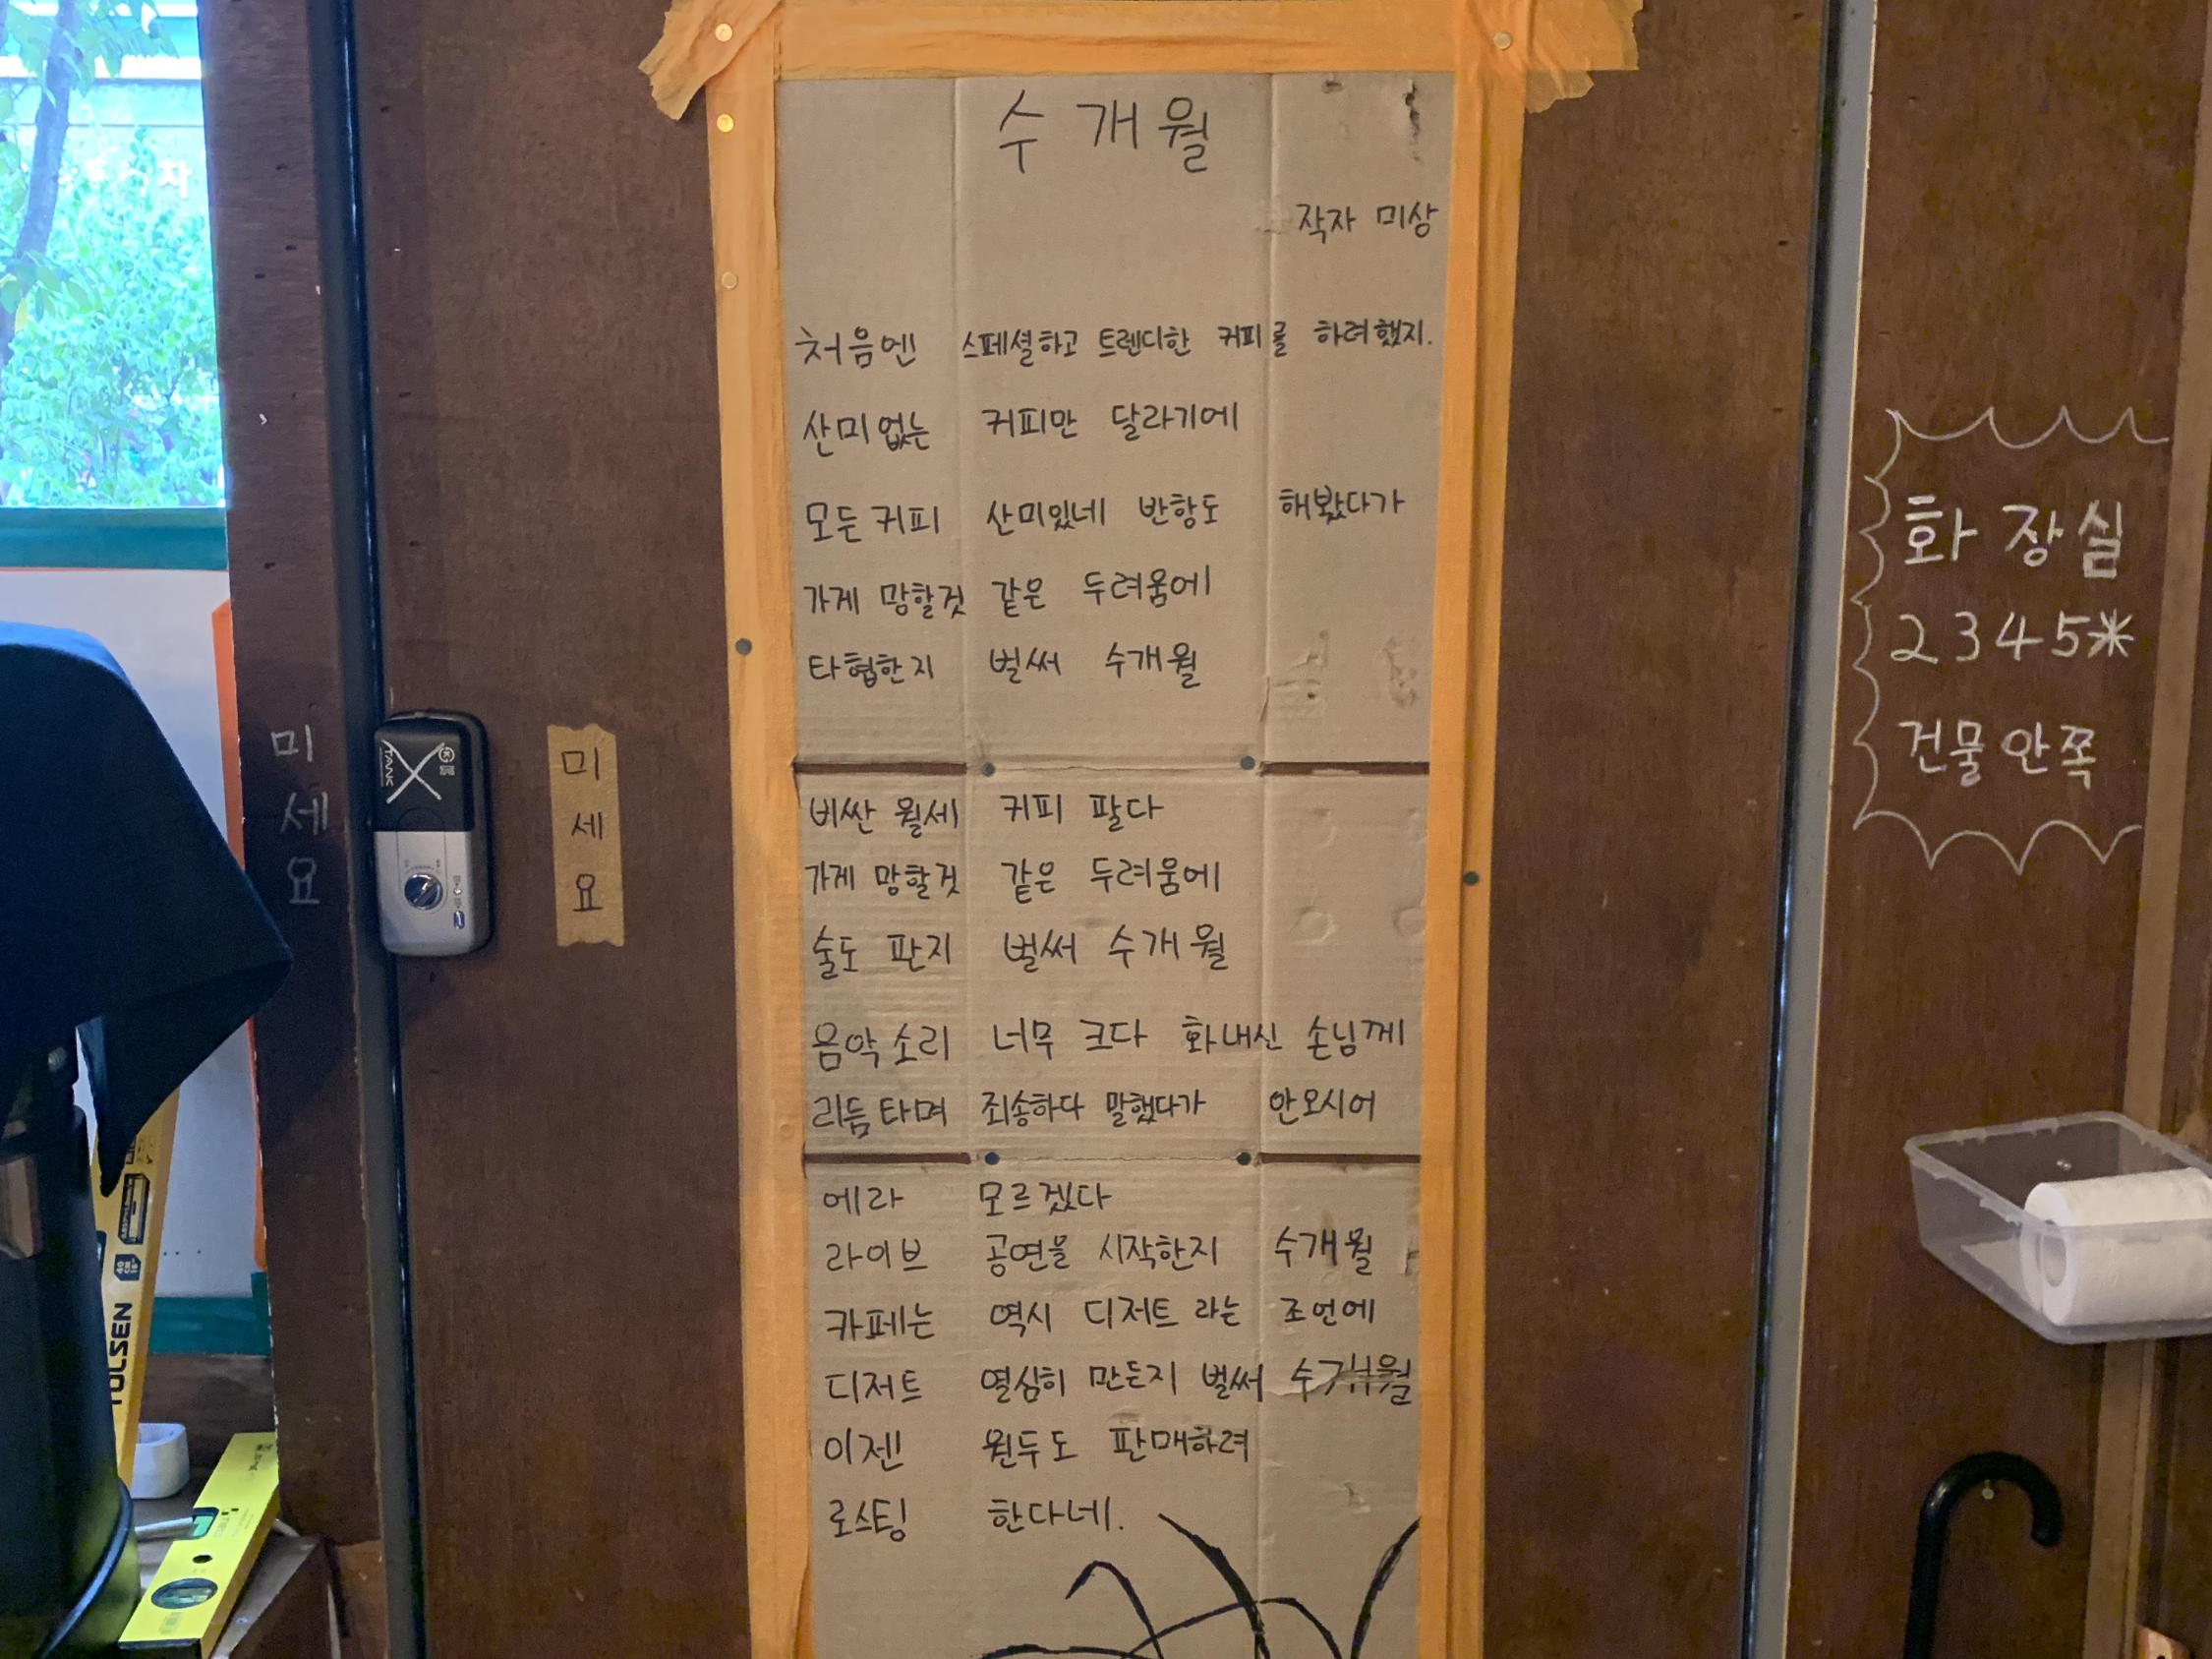 수개월
작자 미상
처음엔 스페셜하고 트렌디한 커피를 하려했지.
산미없는 커피만 달라기에
모든 커피 산미있네 반항도 해봤다가
가게 망할것 같은 두려움에
타협한지 벌써 수개월
비싼 월세 커피 팔다
가게 망할것 같은 두려움에
술도 판지 벌써 수개월
음악소리 너무 크다 화내신 손님께
리듬타며 죄송하다 말했다가 안오시어
에라 모르겠다
라이브 공연을 시작한지 수개월
카페는 역시 디저트 라는 조언에
디저트 열심히 만든지 벌써 수개월
이젠 원두도 판매하려
로스팅 한다네.
미
세
요
TANK
미
세
요
화장실
2345*
건물안쪽
TOLSEN
자